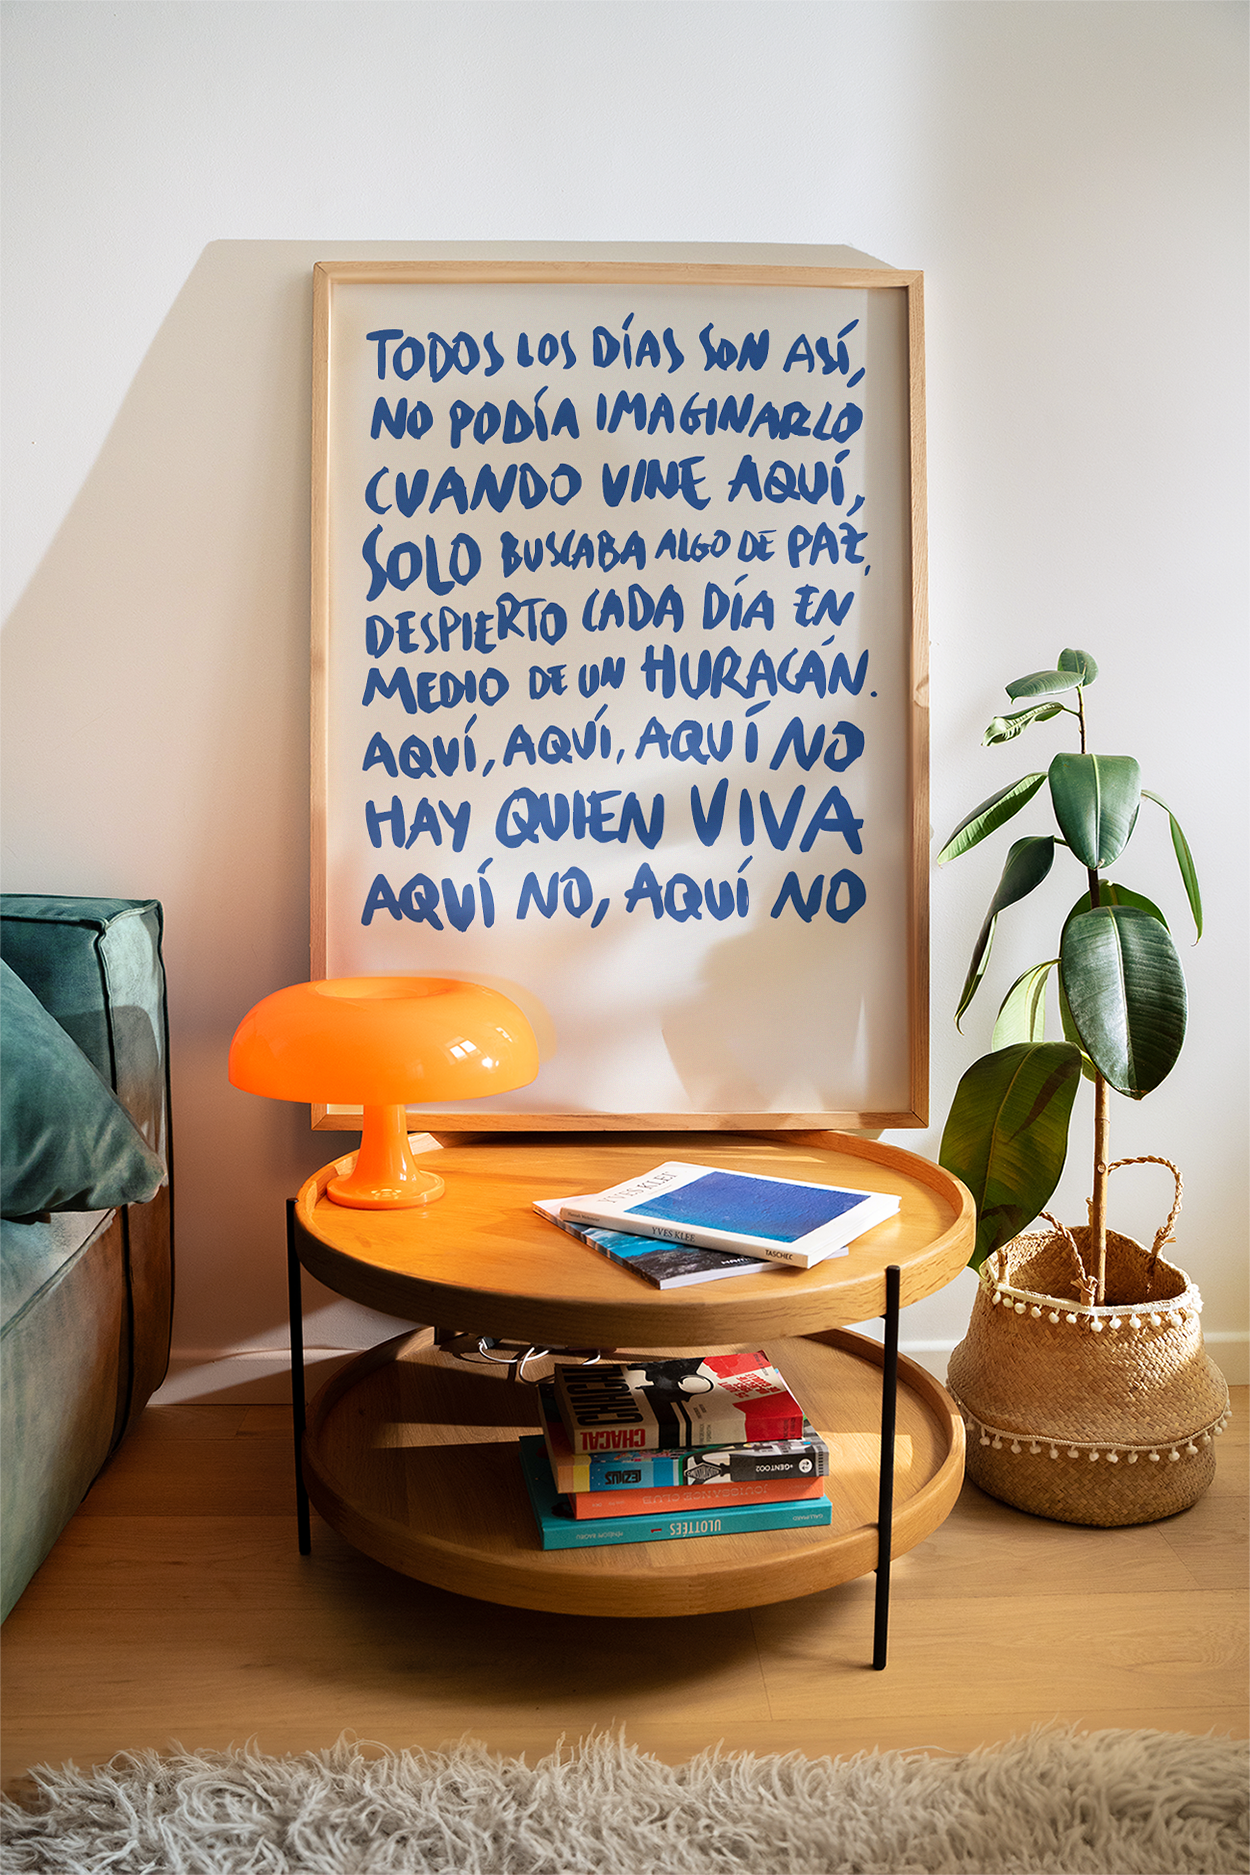 TODOS LOS DÍAS SON ASÍ,
NO PODÍA IMAGINARLO
CUANDO VINE AQUÍ,
SOLO BUSCABA ALGO DE PAZ,
DESPIERTO CADA DÍA EN
MEDIO DE UN HURACÁN.
AQUÍ, AQUÍ, AQUÍ NO
HAY QUIEN VIVA
AQUÍ NO, AQUÍ NO
YVES KLEIN
YVES KLEE
TASCHEN
CHACAL
CHACAL
+GENTO02
JOUISSANCE CLUB
ULOTTÉES
GALLIMARD